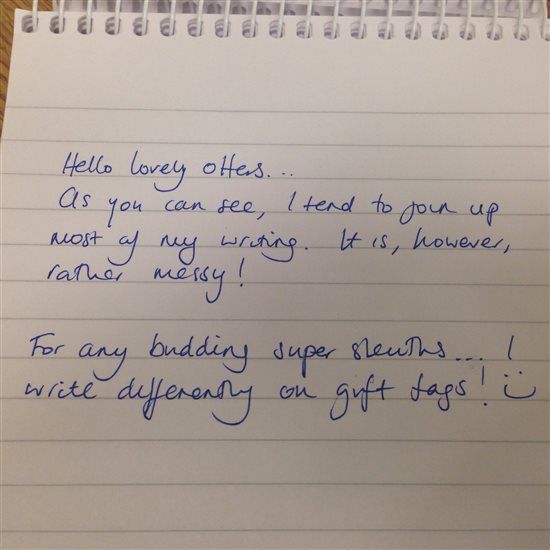 Hello lovely otters...
As you can see, I tend to join up
most of my writing. It is, however,
rather messy!
For any budding super sleuths.... I
write differently on gift tags! :)